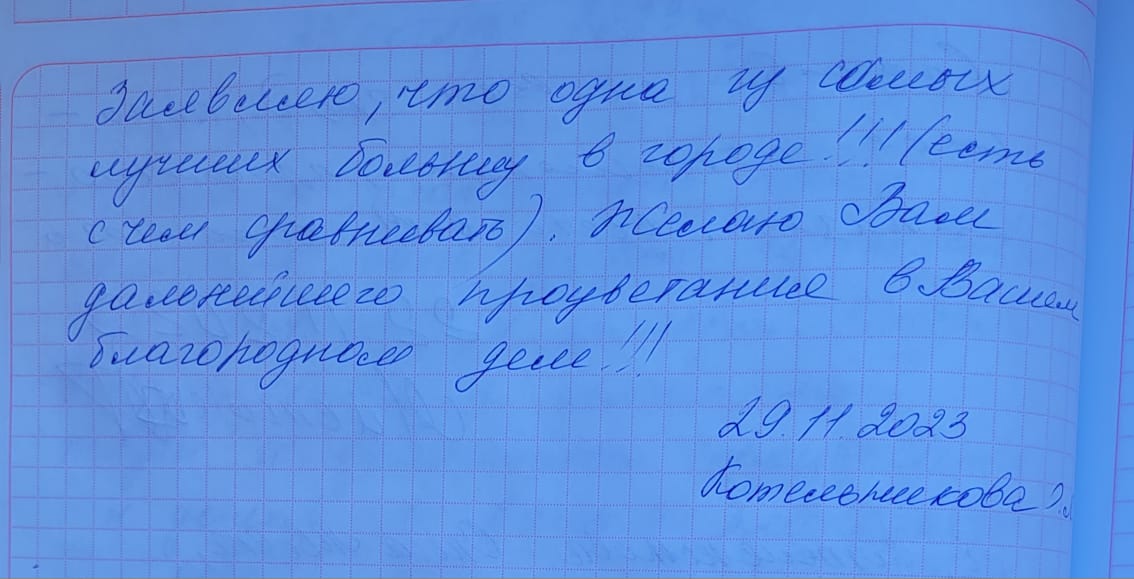 Заявляю, что одна из самых
лучших больниц в городе!!! (есть
с чем сравнивать). Желаю Вам
дальнейшего процветание в Вашем
благородном деле!!!
29.11.2023
Котельникова